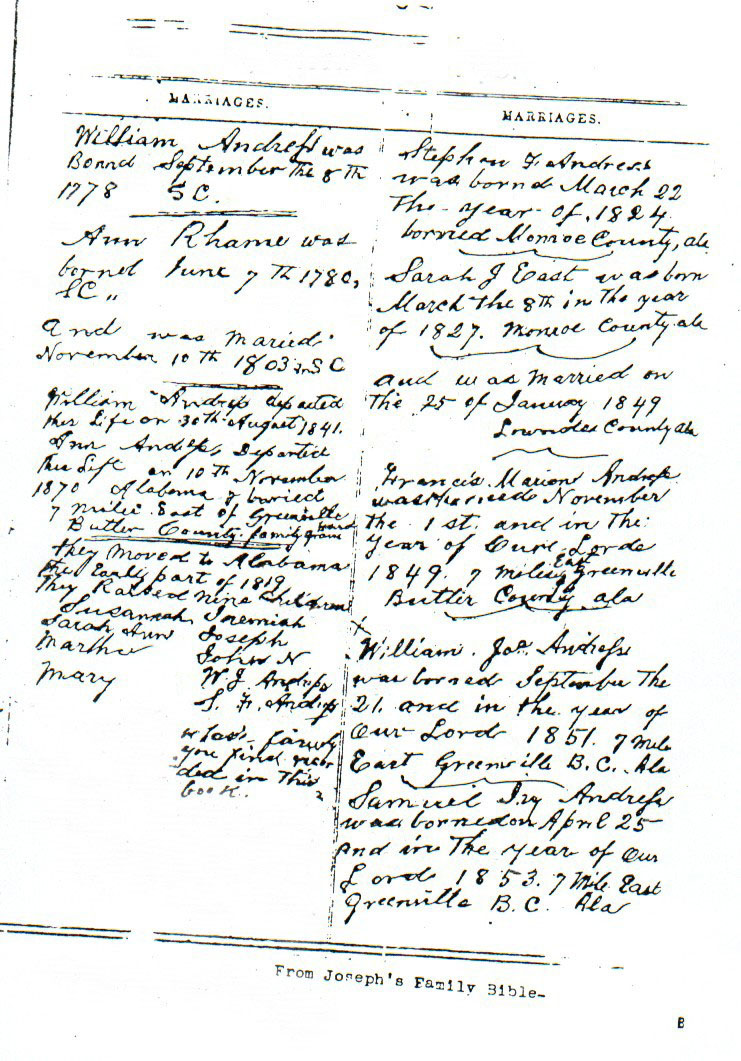 MARRIAGES.
William Andress was
Bornd September the 8th
1778 SC.
Ann Rhame was
borned June 7 TH 1780,
SC "
and was maried
November 10 th 1803 in S C
William Andress departed
this Life on 30th August 1841.
Ann Andress Departed
this Life on 10 th November
1870 Alabama & buried
7 miles East of Greenville
Butler County family grave
yard
they moved to Alabama
the Early part of 1819
They Raised nine children
Susannah Jeremiah
Sarah Ann Joseph
Martha John N
Mary W J Andress
S. F. Andress
whos family
you find recor
ded in this
book.
MARRIAGES.
Stephen F Andress
was bornd March 22
The year of, 1824
borned Monroe County, ala
Sarah J East was born
March the 8th in the year
of 1827. Monroe County ala
and was Married on
The 25 of January 1849
Lowndes County ala
Francis Marion Andress
was borned November
the 1st. and in the
year of Oure Lorde
1849. 7 miles East Greenville
Butler County ala
x
William. Jos. Andress
was borned September The
21. and in the year of
Our Lord 1851. 7 Mile
East Greenville B.C. Ala
Samuel Iry Andress
was borned on April 25
and in The year of Our
Lord 1853. 7 Mile East
Greenville B.C. Ala
From Joseph's Family Bible-
B